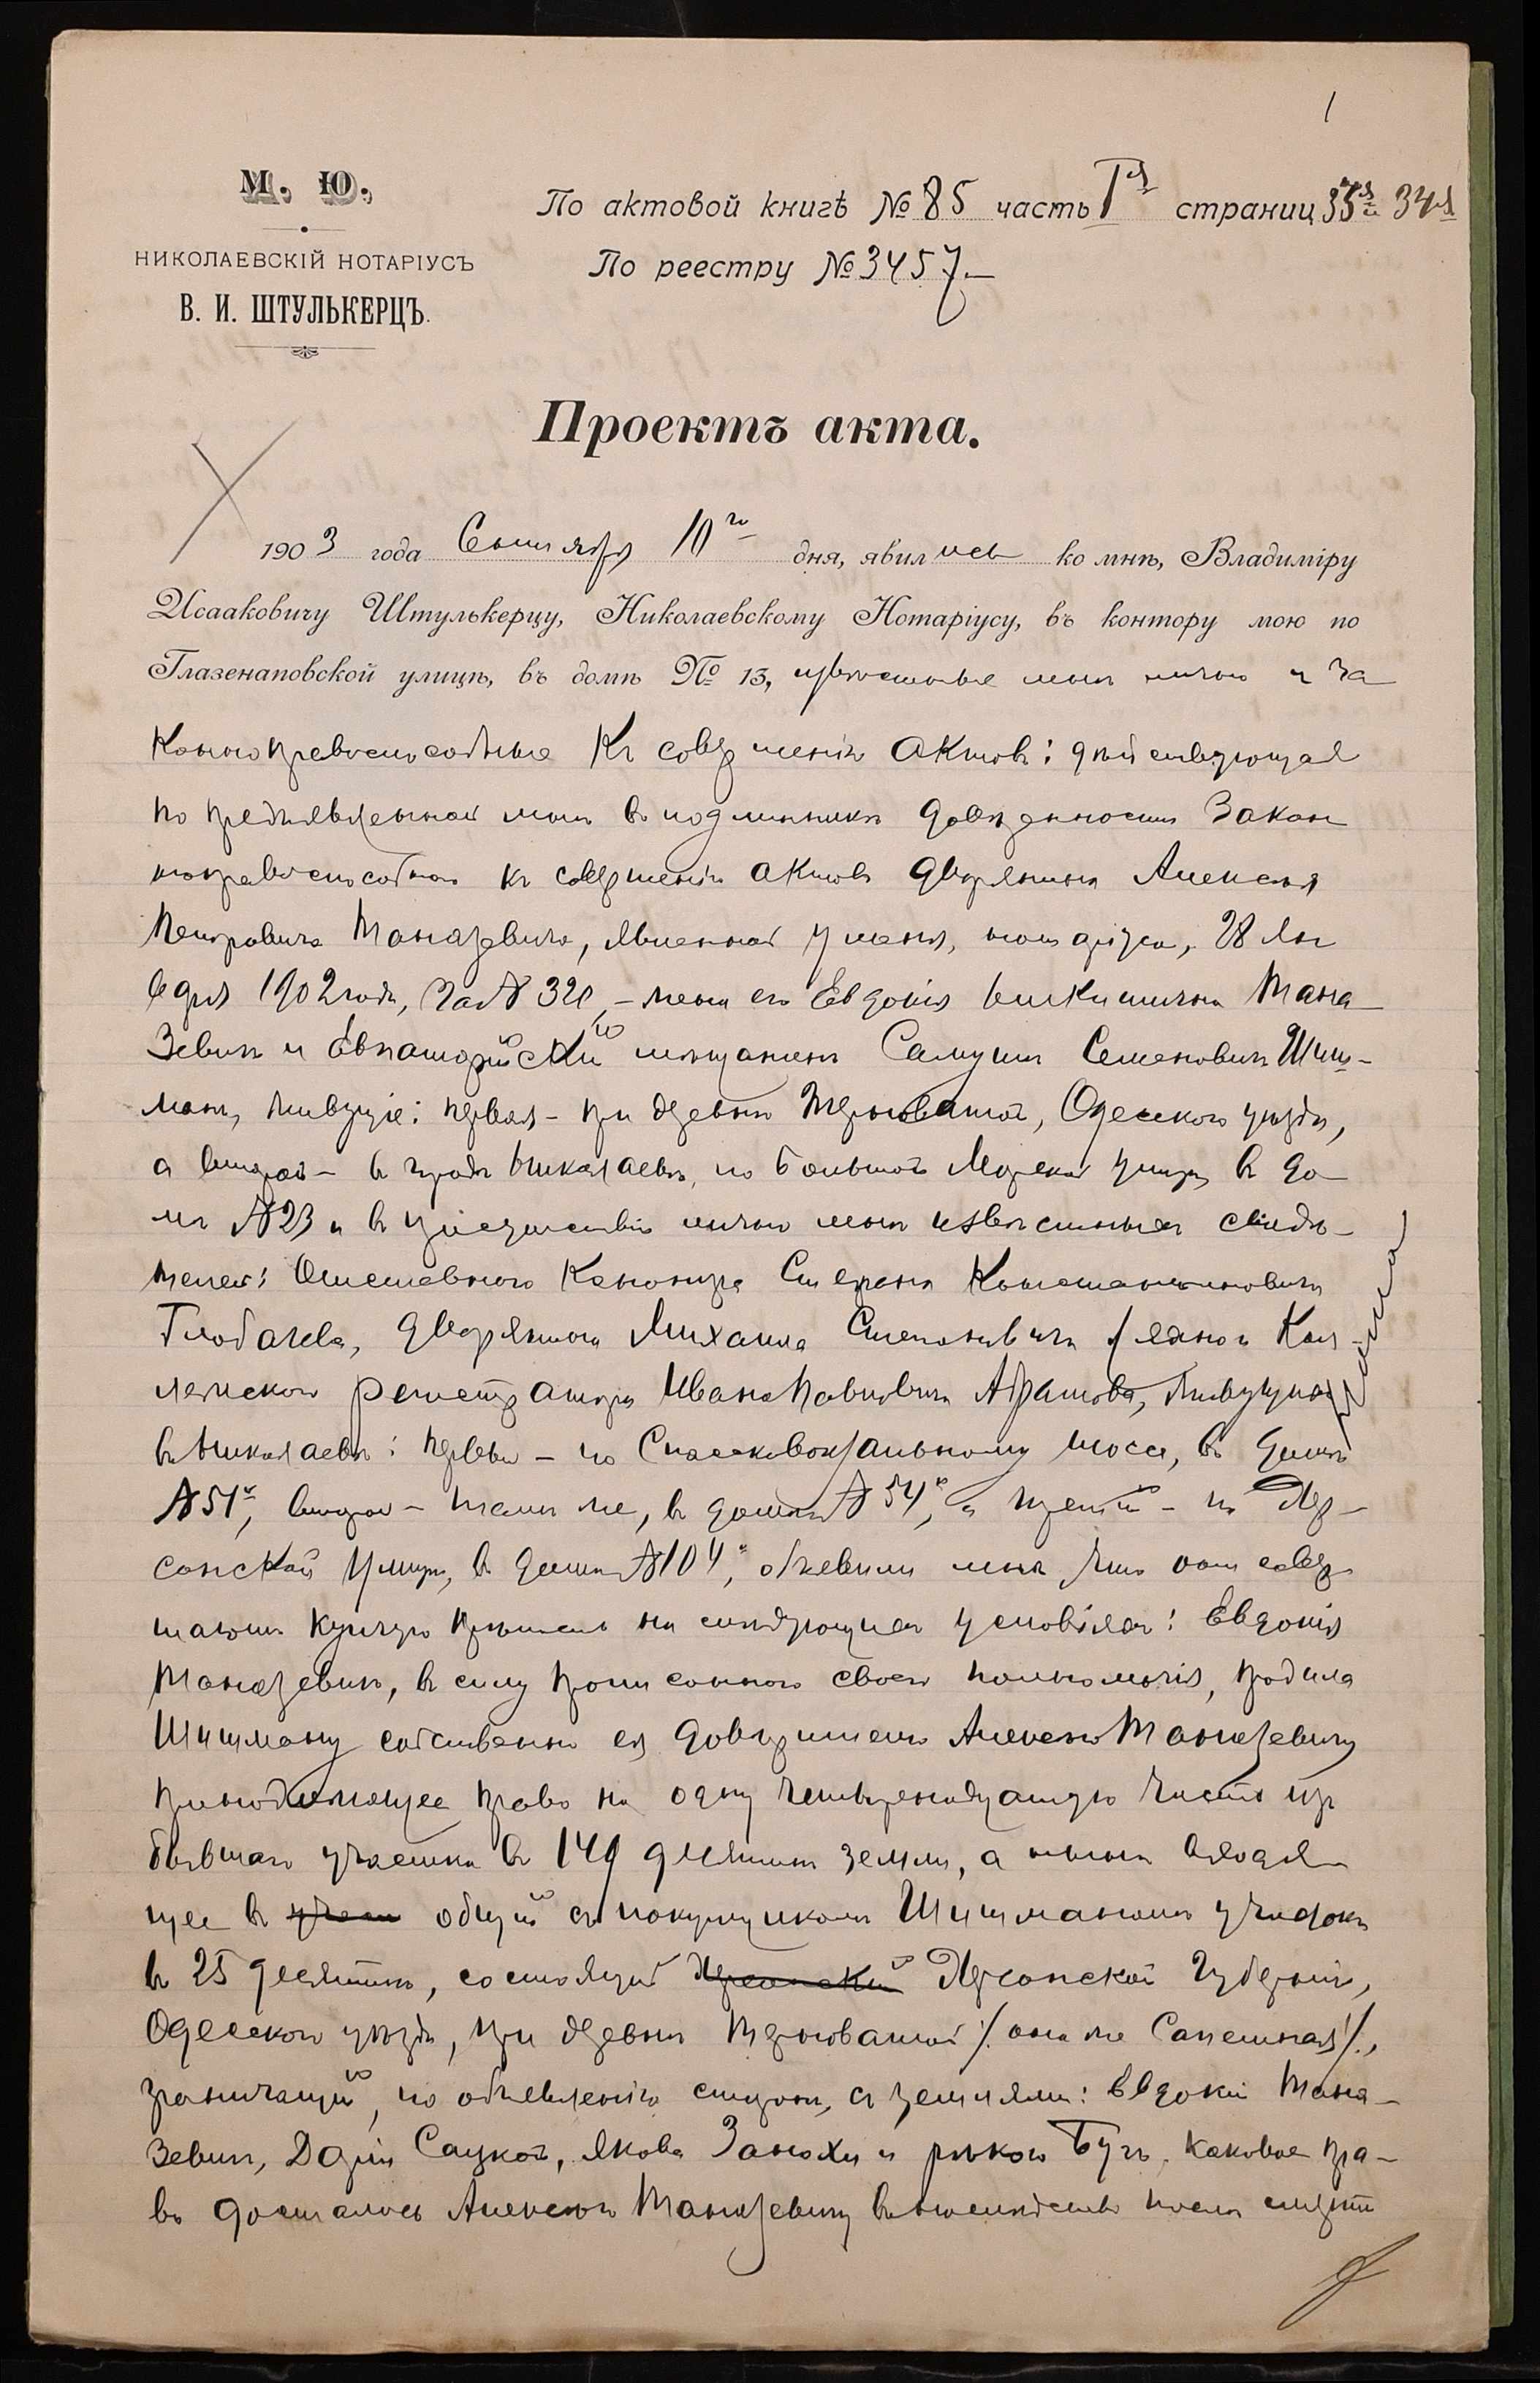 1
М. Ю.
По актовой книгѣ № 85 часть Iя страниц 33я и 34я
НИКОЛАЕВСКІЙ НОТАРІУСЪ
По реестру № 3457.
В. И. ШТУЛЬКЕРЦЪ.
Проектъ акта.
1903 года Сентября 10го дня, явились ко мнѣ, Владиміру
Исааковичу Штулькерцу, Николаевскому Нотаріусу, въ контору мою по
Глазенаповской улицѣ, въ домѣ № 13, известные мнѣ лично и за
коннправоспособные къ совершенію актовъ: дѣйствующая
по предъявленной мнѣ въ подлинникѣ довѣренности закон
ноправоспособнаго къ совершенію актовъ дворянина Алексѣя
Петровича Таназевича, явленной у меня, нотаріуса, 28 Ян
варя 1902 года, за № 320, – жена его Евдокія Никитична Тана
зевичъ и Евпаторійскій мѣщанинъ Самуилъ Семеновичъ Шиш-
манъ, живущіе: первая – при деревнѣ Терноватой, Одесскаго уѣзда,
а второй – въ городѣ Николаевѣ, по Большой Морской улицѣ въ до
мѣ № 23 и въ присутствіи лично мнѣ извѣстныхъ свидѣ-
телей: Отставного Канонира Степана Константиновича
Глобачева, дворянина Михаила Степановича и Кол-
лежскаго регистратора Ивана Павловича Абрамова, живущихъ
въ Николаевѣ: первый – по Спасскому шоссе, въ домѣ
№ 51, второй – тамъ же, въ домѣ № 54, и третій – по Хер-
сонской улицѣ, въ домѣ № 104, объявили мнѣ, что они совер
шаютъ купчую крѣпость на слѣдующихъ условіяхъ: Евдокія
Таназевичъ, въ силу прописаннаго своего полномочія, продала
Шишману собственно ея довѣрителю Алексѣю Таназевичу
принадлежащее право на одну четырнадцатую часть изъ
бывшаго участка въ 149 десятинъ земли, а нынѣ входя
щее въ общій съ покупщикомъ Шишманомъ участокъ
въ 25 десятинъ, состоящій Херсонской губерніи,
Одесскаго уѣзда, при деревнѣ Терноватой /она же Сапетная/,
граничащій, по объявленію сторонъ, съ землями: Евдокіи Тана-
зевичъ, Дарьи Сацкой, Якова Заноxи и рѣкою Бугъ, каковое пра-
во досталось Алексѣю Таназевичу въ наслѣдство послѣ смерти